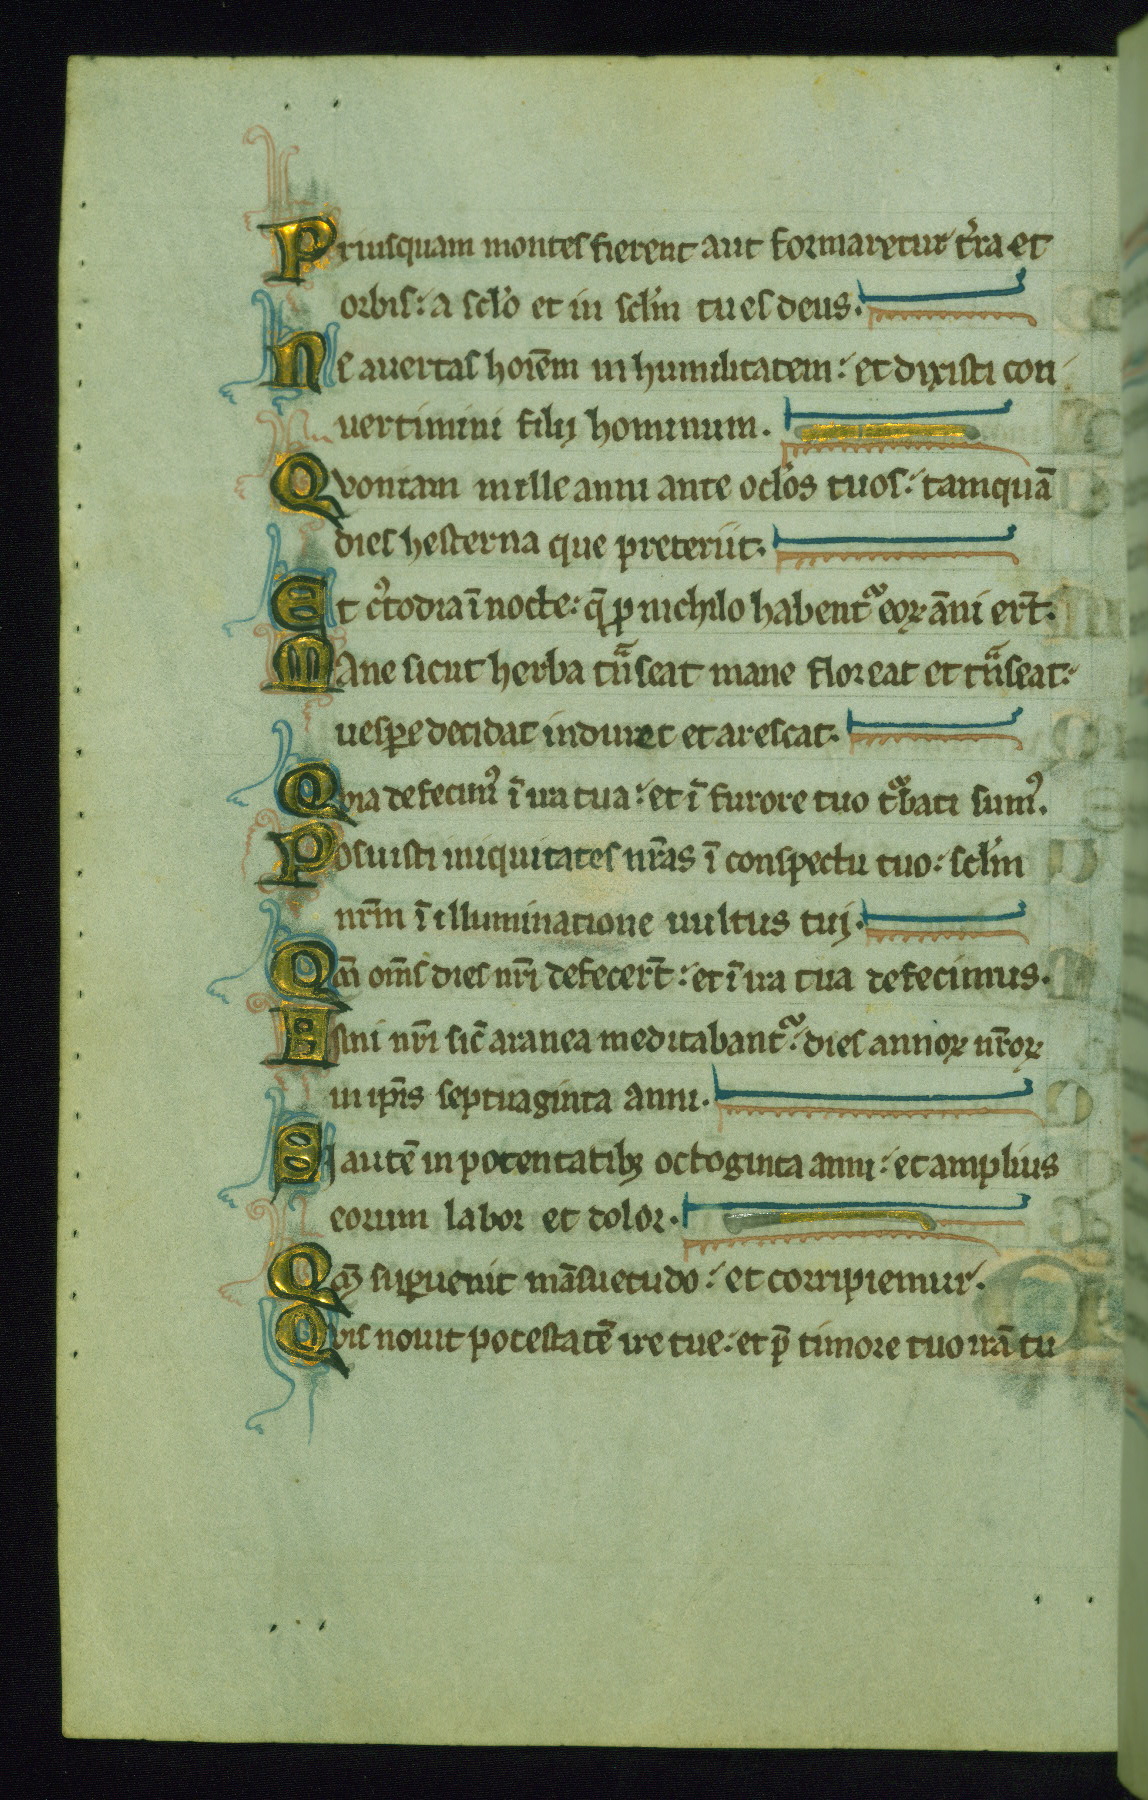 Priusquam montes fierent aut formaretur t̾ra et
orbis: a sc̾lo et in sc̾lm tu es deus.
Ne auertas hoi᷒em in humilitatem: et dixisti con
uertimini filij hominum.
Quoniam mille anni ante oc̾los tuos: tamquā
dies hesterna que preteriit.
Et c᷒todia ī nocte: q̄ ꝓ nichilo habentᷣ eoꝝ āni ert̄.
Mane sicut herba tᷓnseat mane floreat et tᷓnseat:
uesꝑe decidat induret et arescat.
Quia defecim᷒ ī ira tua: et ī furore tuo tᷣbati sum᷒.
Posuisti iniquitates nr̄as ī conspectu tuo: sc̾lm
nr̄m ī illuminatione uultus tuj.
Qm̄ om̄s dies nr̄i defecert̄: et ī ira tua defecimus.
Anni nr̄i sic̄ aranea meditabantᷣ: dies annoꝝ nr̄oꝝ
in ip̄is septuaginta anni.
Si autē in potentatibꝫ octoginta anni: et amplius
eorum labor et dolor.
Qm̄ suꝑuenit māsuetudo: et corripiemur.
Quis nouit potestatē ire tue: et p̄ timore tuo irā tu